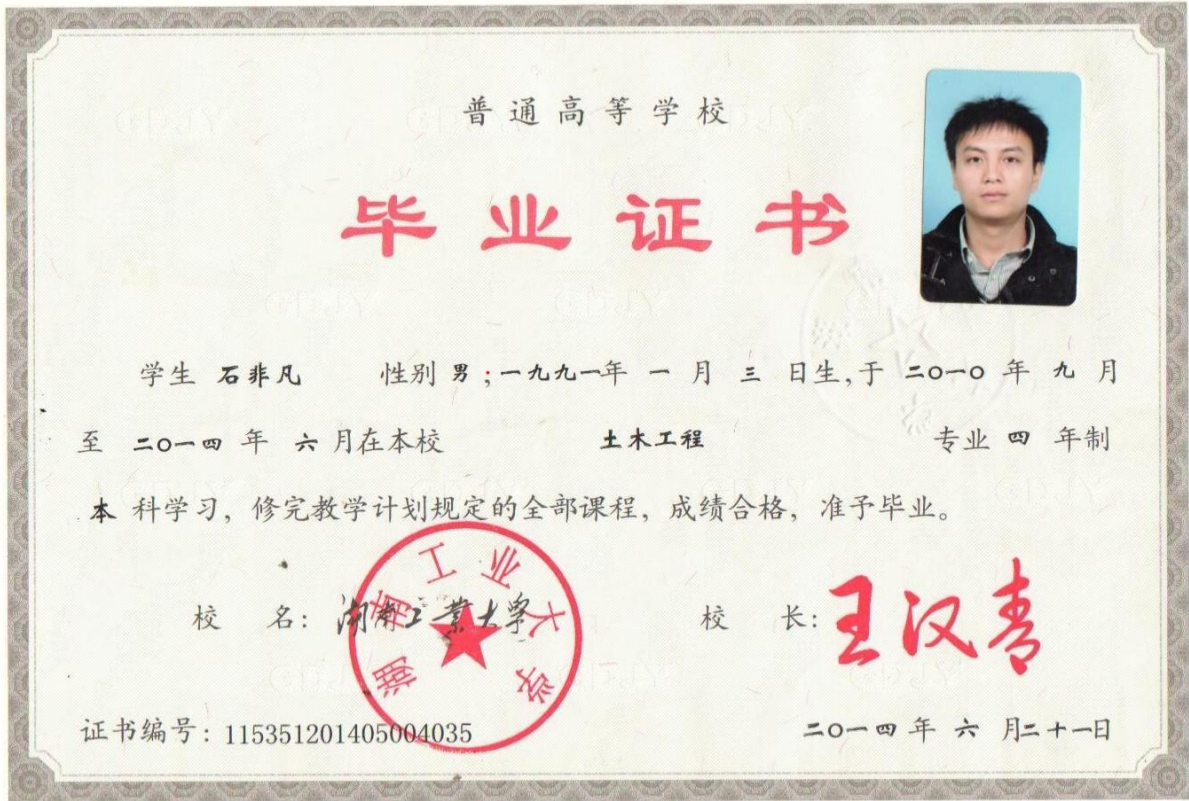 普通高等学校
毕业证书
学生 石非凡 性别 男;一九九一年 一 月 三 日生,于 二〇一〇 年 九 月
至 二〇一四 年 六 月在本校 土木工程 专业 四 年制
本 科学习，修完教学计划规定的全部课程，成绩合格，准予毕业。
校 名：湖南工业大学
湖南工业大学
校 长：王汉青
证书编号：115351201405004035
二〇一四 年 六 月二十一日